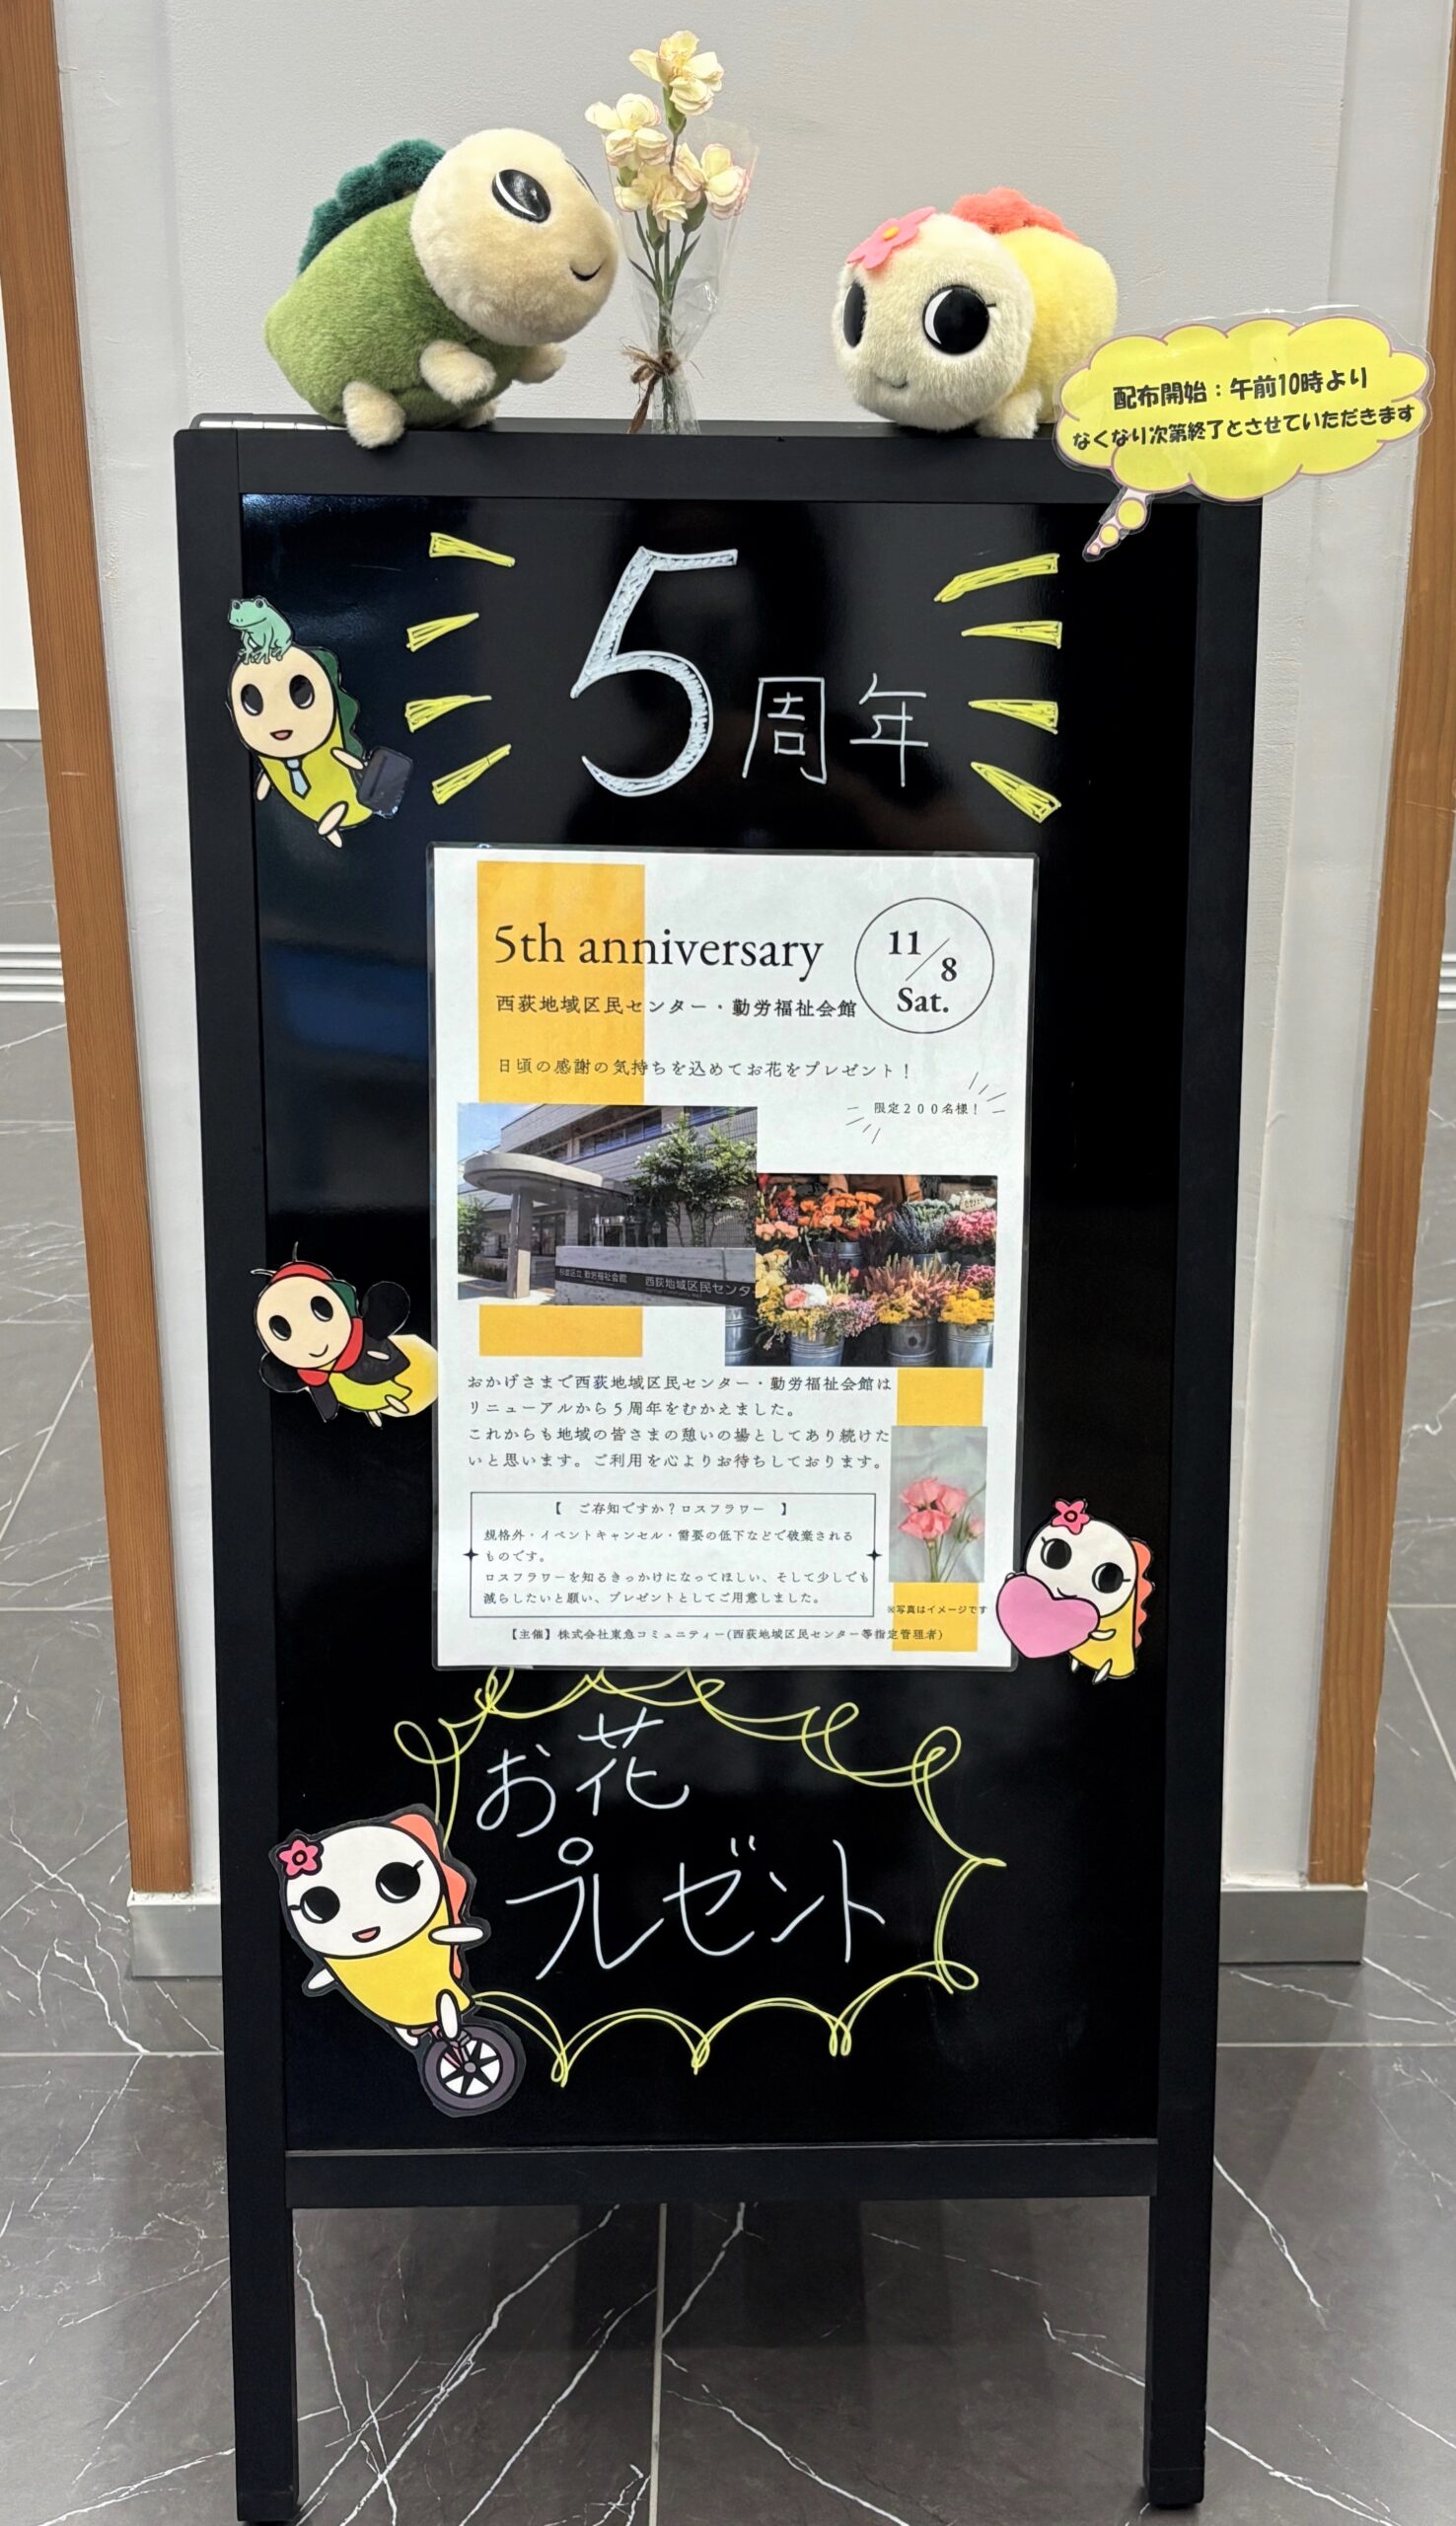 配布開始：午前10時より
なくなり次第終了とさせていただきます
5周年
5th anniversary
11/8
Sat.
西荻地域区民センター・勤労福祉会館
日頃の感謝の気持ちを込めてお花をプレゼント！
限定200名様！
杉並区立 勤労福祉会館
西荻地域区民センタ
おかげさまで西荻地域区民センター・勤労福祉会館は
リニューアルから5周年をむかえました。
これからも地域の皆さまの憩いの場としてあり続けた
いと思います。ご利用を心よりお待ちしております。
【 ご存知ですか？ロスフラワー 】
規格外・イベントキャンセル・需要の低下などで破棄される
ものです。
ロスフラワーを知るきっかけになってほしい、そして少しでも
減らしたいと願い、プレゼントとしてご用意しました。
※写真はイメージです
【主催】株式会社東急コミュニティー(西荻地域区民センター等指定管理者)
お花
プレゼント